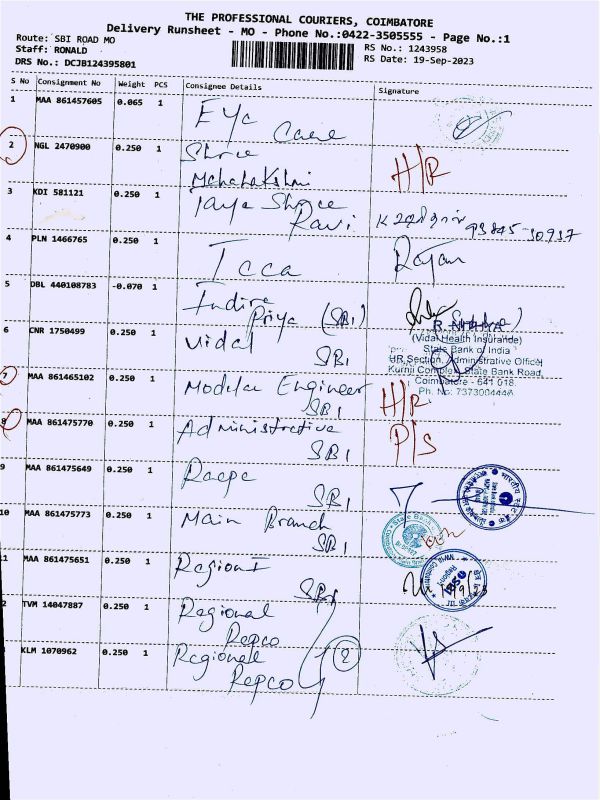 THE PROFESSIONAL COURIERS, COIMBATORE
Delivery Runsheet - MO - Phone No.:0422-3505555 - Page No.:1
Route: SBI ROAD MO
RS No.: 1243958
Staff: RONALD
RS Date: 19-Sep-2023
DRS No.: DCJB124395801
S No Consignment No Weight PCS Consignee Details Signature
1 MAA 861457605 0.065 1 Eye
Care
2 NGL 2470900 0.250 1 Shree
Mahalakshmi H/R
3 KDI 581121 0.250 1 Jaya Shree
Ravi
4 PLN 1466765 0.250 1 Icca Rajan
5 DBL 440108783 -0.070 1 Indira
Priya (SBI)
6 CNR 1750499 0.250 1 Vidal
SBI
(Vidal Health Insurance)
State Bank of India
HR Section, Administrative Office
Kurnji Complex, State Bank Road,
Coimbatore - 641 018.
Ph. No: 7373004446
7 MAA 861465102 0.250 1 Modular Engineer
SBI H/R
8 MAA 861475770 0.250 1 Administrative
SBI P/S
9 MAA 861475649 0.250 1
SBI
10 MAA 861475773 0.250 1 Main Branch
SBI
State Bank
11 MAA 861475651 0.250 1 Region I
SBI
SBI
2 TVM 14047887 0.250 1 Regional
Repco
KLM 1070962 0.250 1 Regional
Repco 2